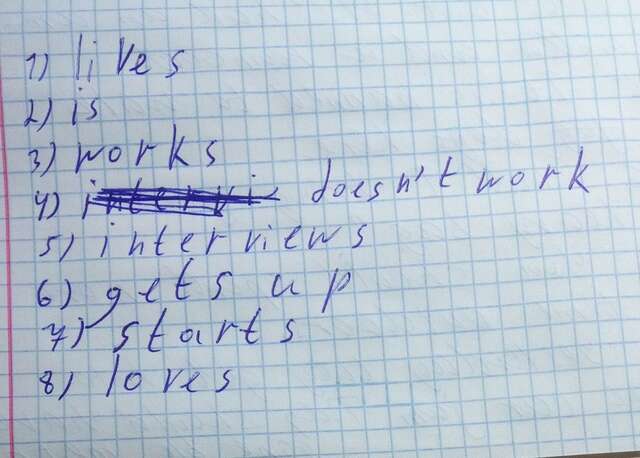 1) lives
2) is
3) works
4) doesn't work
5) interviews
6) gets up
7) starts
8) loves